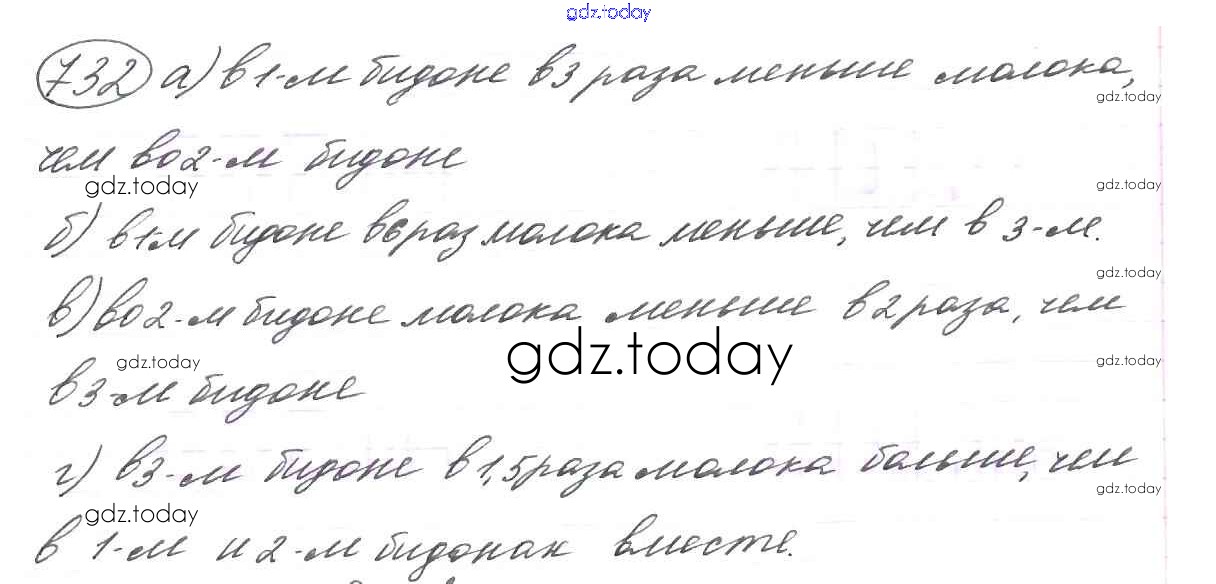 gdz.today
732 а) в 1-м бидоне в 3 раза меньше молока,
gdz.today
чем во 2-м бидоне
gdz.today gdz.today
б) в 1-м бидоне в 6 раз молока меньше, чем в 3-м.
gdz.today
в) во 2-м бидоне молока меньше в 2 раза, чем
gdz.today
gdz.today gdz.today
в 3-м бидоне
г) в 3-м бидоне в 1,5 раза молока больше, чем
gdz.today
gdz.today
в 1-м и 2-м бидонах вместе.